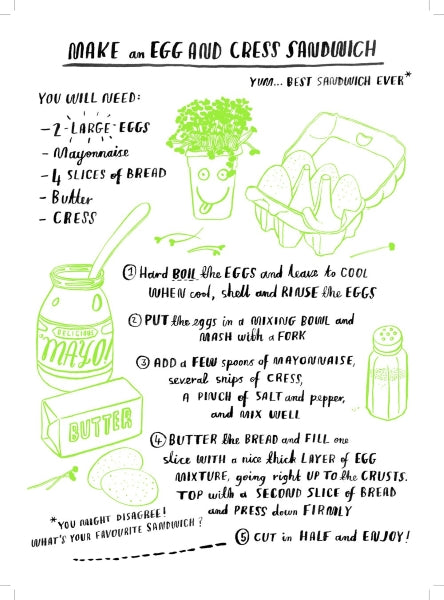 MAKE an EGG AND CRESS SANDWICH
YUM... BEST SANDWICH EVER*
YOU WILL NEED:
- 2 - LARGE - EGGS
- Mayonnaise
- 4 SLICES of BREAD
- Butter
- CRESS
① Hard BOIL the EGGS and leave to COOL
WHEN cool, shell and RINSE the EGGS
② PUT the eggs in a MIXING BOWL and
MASH with a FORK
③ ADD a FEW spoons of MAYONNAISE,
several snips of CRESS,
A PINCH of SALT and pepper,
and MIX WELL
④ BUTTER the BREAD and FILL one
slice WITH a nice thick LAYER of EGG
MIXTURE, going right UP TO the CRUSTS.
TOP with a SECOND SLICE of BREAD
and PRESS down FIRMLY
⑤ CUT in HALF and ENJOY!
DELICIOUS
MAYO!
BUTTER
*YOU MIGHT DISAGREE!
WHAT'S YOUR FAVOURITE SANDWICH?